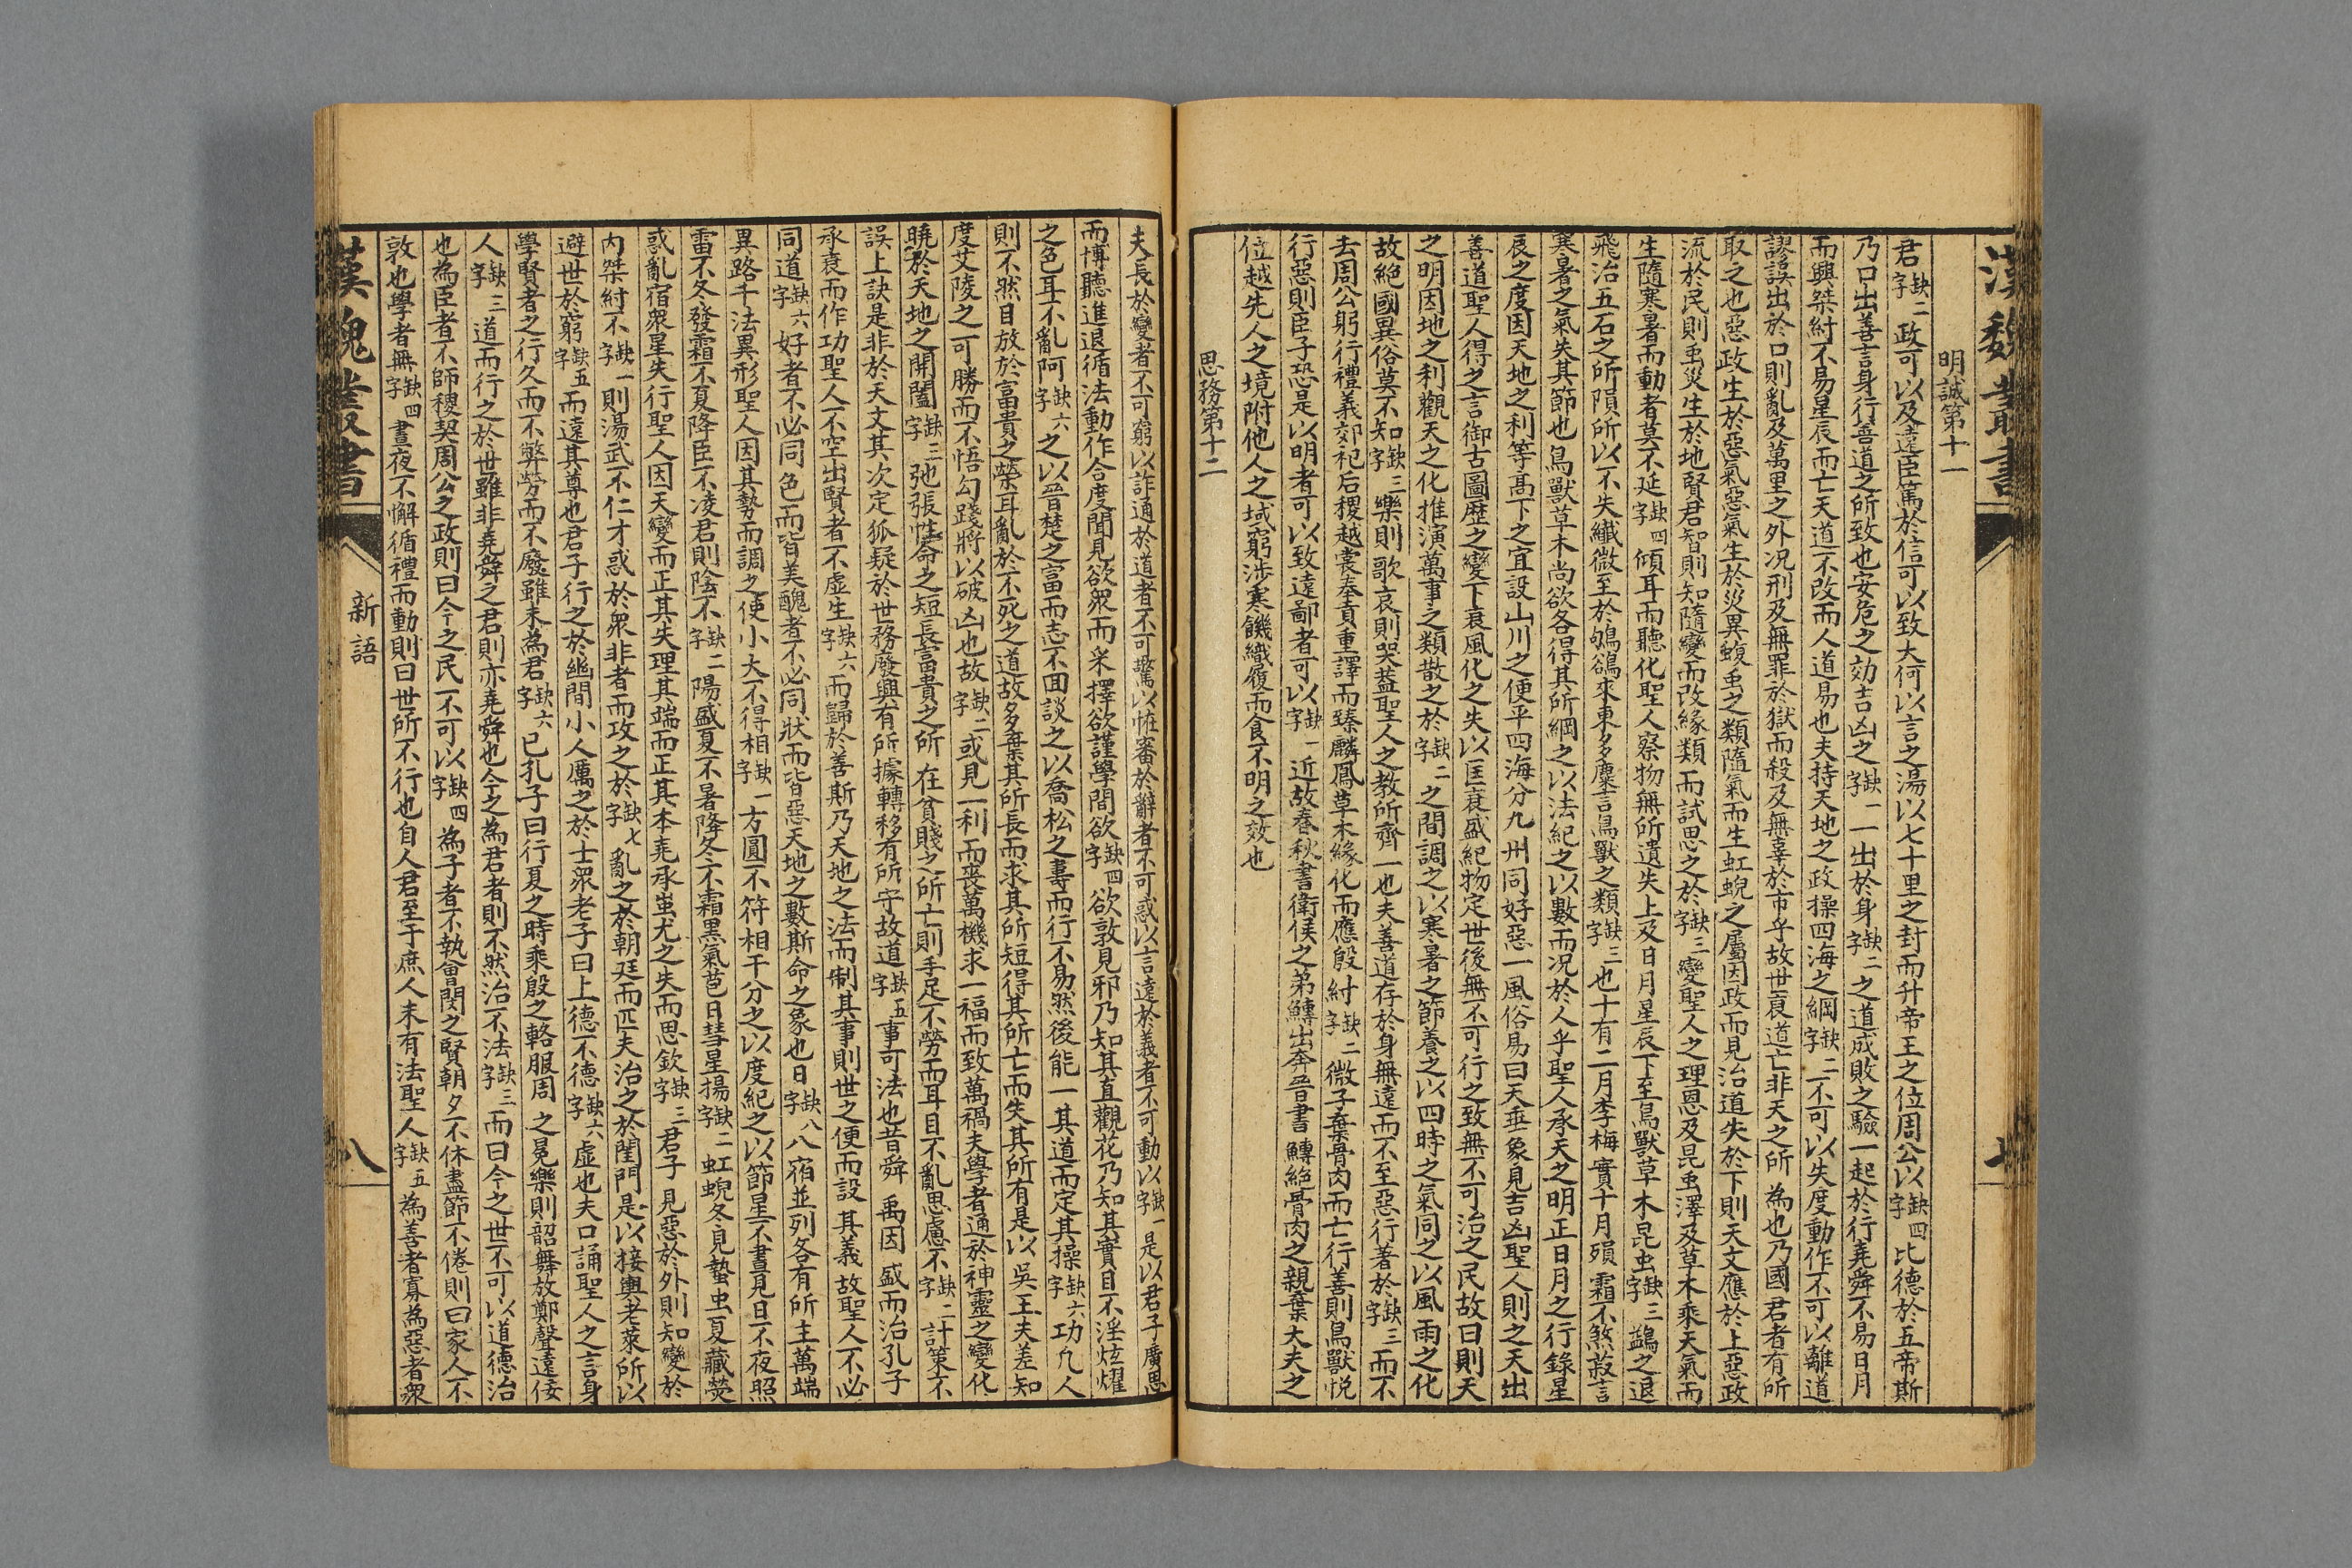 漢魏叢書
七
明誠第十一
君缺二字政可以及遠臣篤於信可以致大何以言之湯以七十里之封而升帝王之位周公以缺四字比德於五帝斯
乃口出善言身行善道之所致也安危之効吉凶之缺一字一出於身缺二字之道成敗之驗一起於行堯舜不易日月
而興桀紂不易星辰而亡天道不改而人道易也夫持天地之政操四海之綱缺二字不可以失度動作不可以離道
謬誤出於口則亂及萬里之外况刑及無罪於獄而殺及無辜於市乎故世衰道亡非天之所 為也乃國君者有所
取之也惡政生於惡氣惡氣生於災異蝮䖝之類隨氣而生虹蜺之屬因政而見治道失於下則天文應於上惡政
流於民則䖝災生於地賢君智則知隨變而改緣類而試思之於缺三字變聖人之理恩及昆虫澤及草木乘天氣而
生隨寒暑而動者莫不延缺四字傾耳而聽化聖人察物無所遺失上及日月星辰下至鳥獸草木昆虫缺三字鷁之退
飛治五石之所隕所以不失纖微至於鴝鵒來東多麋言鳥獸之類缺三字也十有二月李梅實十月殞 霜不煞菽言
寒暑之氣失其節也鳥獸草木尚欲各得其所綱之以法紀之以數而况於人乎聖人承天之明正日月之行錄星
辰之度因天地之利等高下之宜設山川之便平四海分九州同好惡一風俗易曰天垂象見吉凶聖人則之天出
善道聖人得之言御古圖歷之變下衰風化之失以匡衰盛紀物定世後無不可行之致無不可治之民故曰則天
之明因地之利觀天之化推演萬事之類散之於缺二字之間調之以寒暑之節養之以四時之氣同之以風雨之化
故絕國異俗莫不知缺三字樂則歌哀則哭葢聖人之教所齊一也夫善道存於身無遠而不至惡行著於缺三字而不
去周公躬行禮義郊祀后稷越裳奉貢重譯而臻麟鳳草木緣化而應殷紂缺二字微子棄骨肉而亡行善則鳥獸悅
行惡則臣子恐是以明者可以致遠鄙者可以缺一字近故春秋書衛侯之弟鱄出奔晉書 鱄絕骨肉之親棄大夫之
位越先人之境附他人之域窮涉寒饑織履而食不明之效也
思務第十二
夫長於變者不可窮以詐通於道者不可驚以恠審於辭者不可惑以言遠於義者不可動以缺一字是以君子廣思
而博聽進退循法動作合度聞見欲衆而采擇欲謹學問欲缺四字欲敦見邪乃知其直觀花乃知其實目不淫炫燿
之色耳不亂阿缺六字之以晉楚之富而志不回談之以喬松之壽而行不易然後能一其道而定其操缺六字功凢人
則不然目放於富貴之榮耳亂於不死之道故多棄其所長而求其所短得其所亡而失其所有是以吳王夫差知
度艾陵之可勝而不悟勾踐將以破凶也故缺二字或見一利而喪萬機求一福而致萬禍夫學者通於神靈之變化
曉於天地之開闔缺二字弛張性命之短長富貴之所 在貧賤之所亡則手足不勞而耳目不亂思慮不缺二字計策不
誤上訣是非於天文其次定狐疑於世務廢興有所據轉移有所守故道缺五字事可法也昔舜 禹因 盛而治孔子
承衰而作功聖人不空出賢者不虚生缺六字而歸於善斯乃天地之法而制其事則世之便而設 其義 故聖人不必
同道缺六字好者不必同色而皆美醜者不必同狀而皆惡天地之數斯命之象也日缺八字八宿並列各有所主萬端
異路千法異形聖人因其勢而調之使小大不得相缺一字方圓不符相干分之以度紀之以節星不晝見日不夜照
雷不冬發霜不夏降臣不凌君則陰不缺二字陽盛夏不暑降冬不霜黑氣苞日彗星揚缺二字虹蜺冬見蟄虫夏藏熒
惑亂宿衆星失行聖人因天變而正其失理其端而正其本堯承蚩尤之失而思欽缺三字君子 見惡於外則知變於
内桀紂不缺一字則湯武不仁才惑於衆非者而攻之於缺七字亂之於朝廷而匹夫治之於閨門是以接輿老萊所以
避世於窮缺五字而遠其尊也君子行之於幽間小人厲之於士衆老子曰上德不德缺六字虚也夫口誦聖人之言身
學賢者之行久而不弊勞而不廢雖未為君缺六字已孔子曰行夏之時乘殷之輅服周 之冕樂則韶舞放鄭聲遠佞
人缺三字道而行之於世雖非堯舜之君則亦堯舜也今之為君者則不然治不法缺三字而曰今之世不可以道德治
也為臣者不師稷契周公之政則曰今之民不可以缺四字為子者不執曾閔之賢朝夕不休盡節不倦則曰家人不
敦也學者無缺四字晝夜不懈循禮而動則曰世所不行也自人君至于庶人未有法聖人缺五字為善者寡為惡者衆
漢魏叢書
新語
八